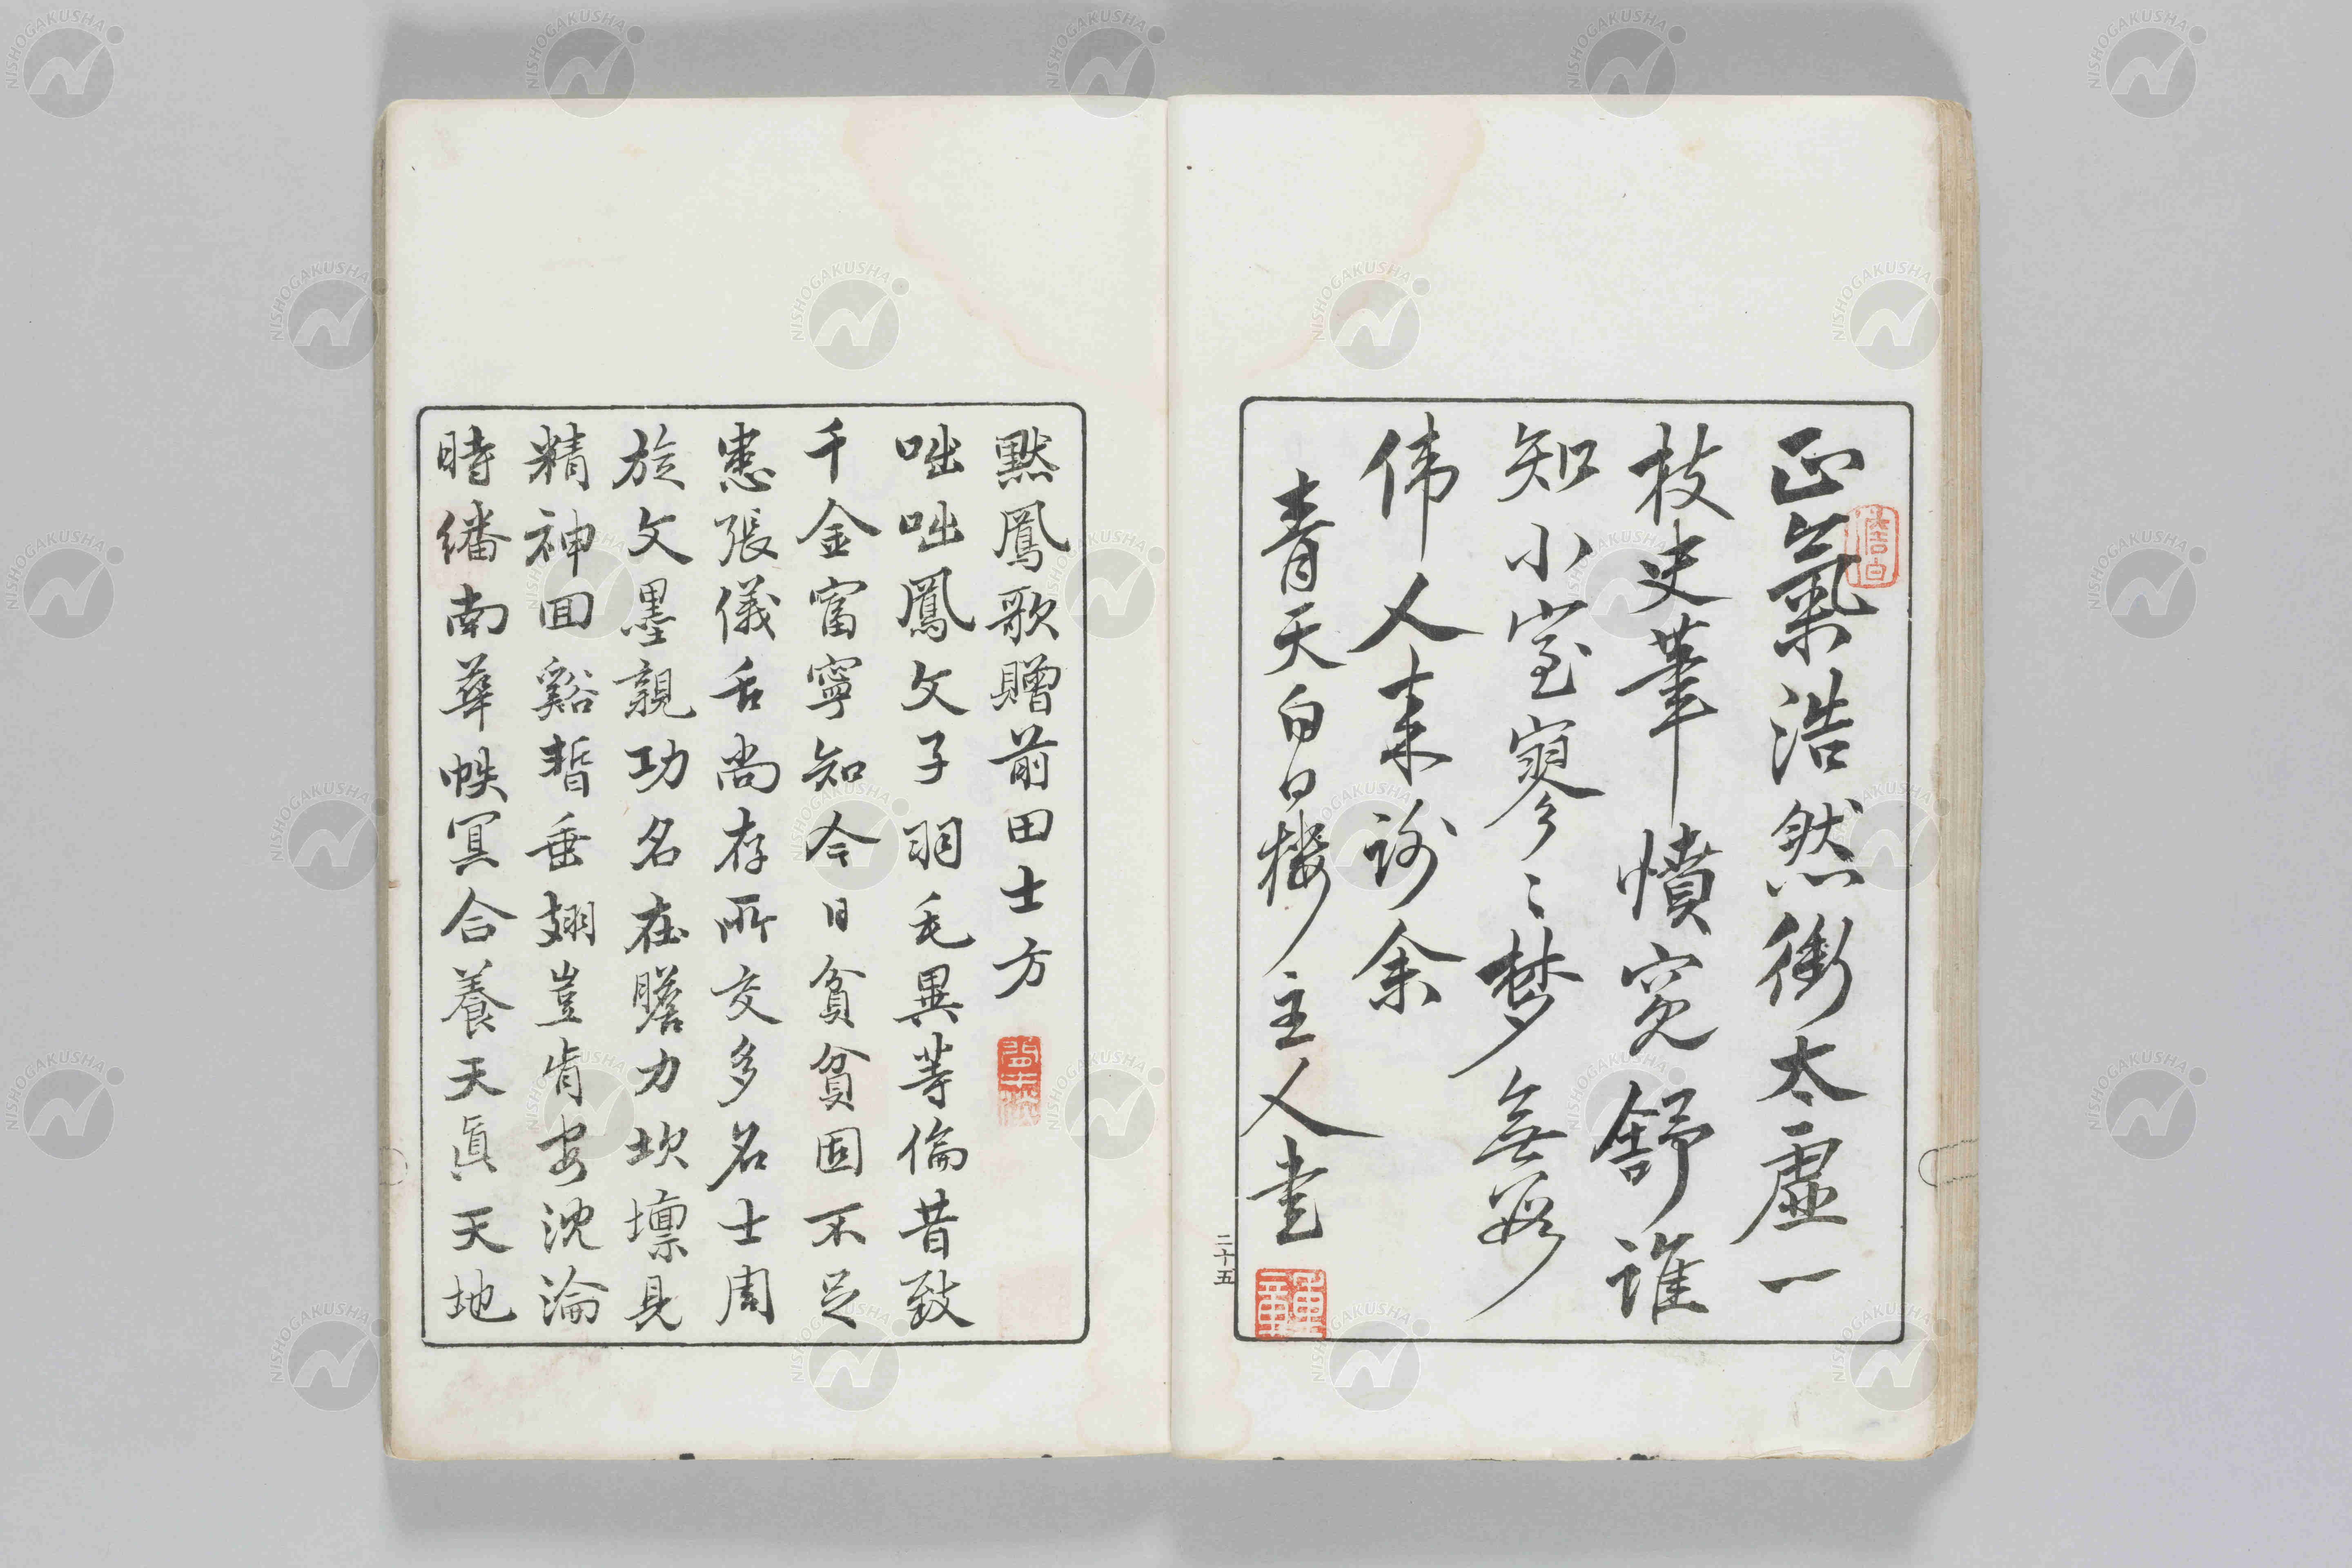 正氣浩然衝太虛一
枝史筆憤冤舒誰
知小室寥々夢無數
偉人來謝余
青天白日樓主人書
二十五
黙鳳歌贈前田士方
咄咄鳳文子羽毛異等倫昔致
千金富寧知今日貧貧固不足
患張儀舌尚存所交多名士周
旋文墨親功名在膽力坎壈見
精神回谿暫垂翅豈肯安沈淪
時繙南華帙冥合養天眞天地
NISHOGAKUSHA